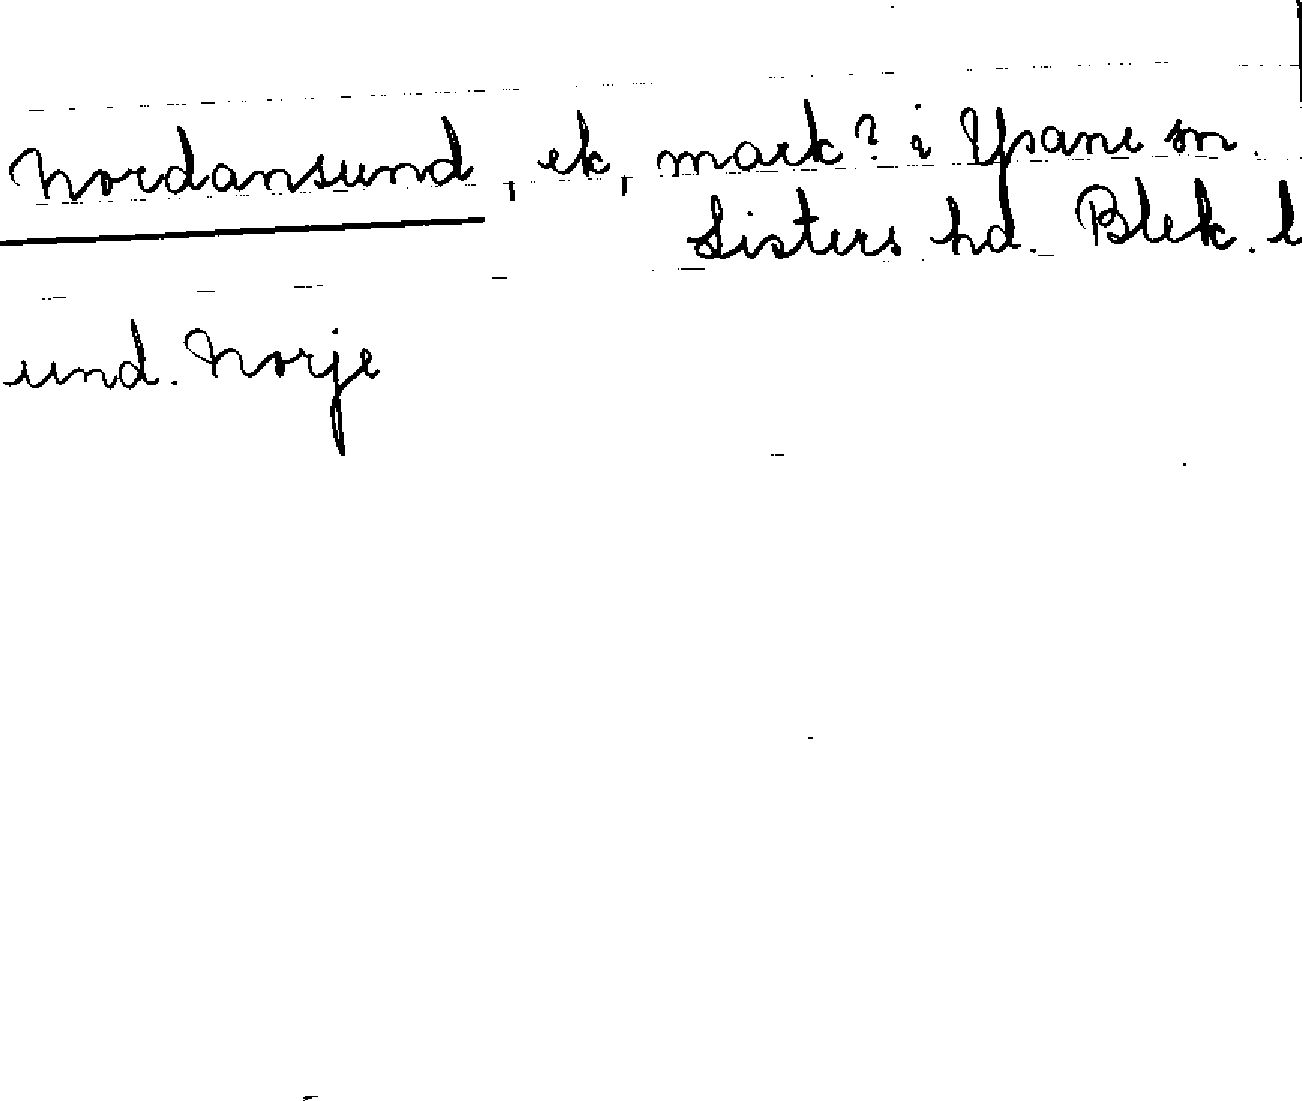 Nordansund, ek, mark? i Ysane sn.
Listers hd. Blek. l
und. Norje